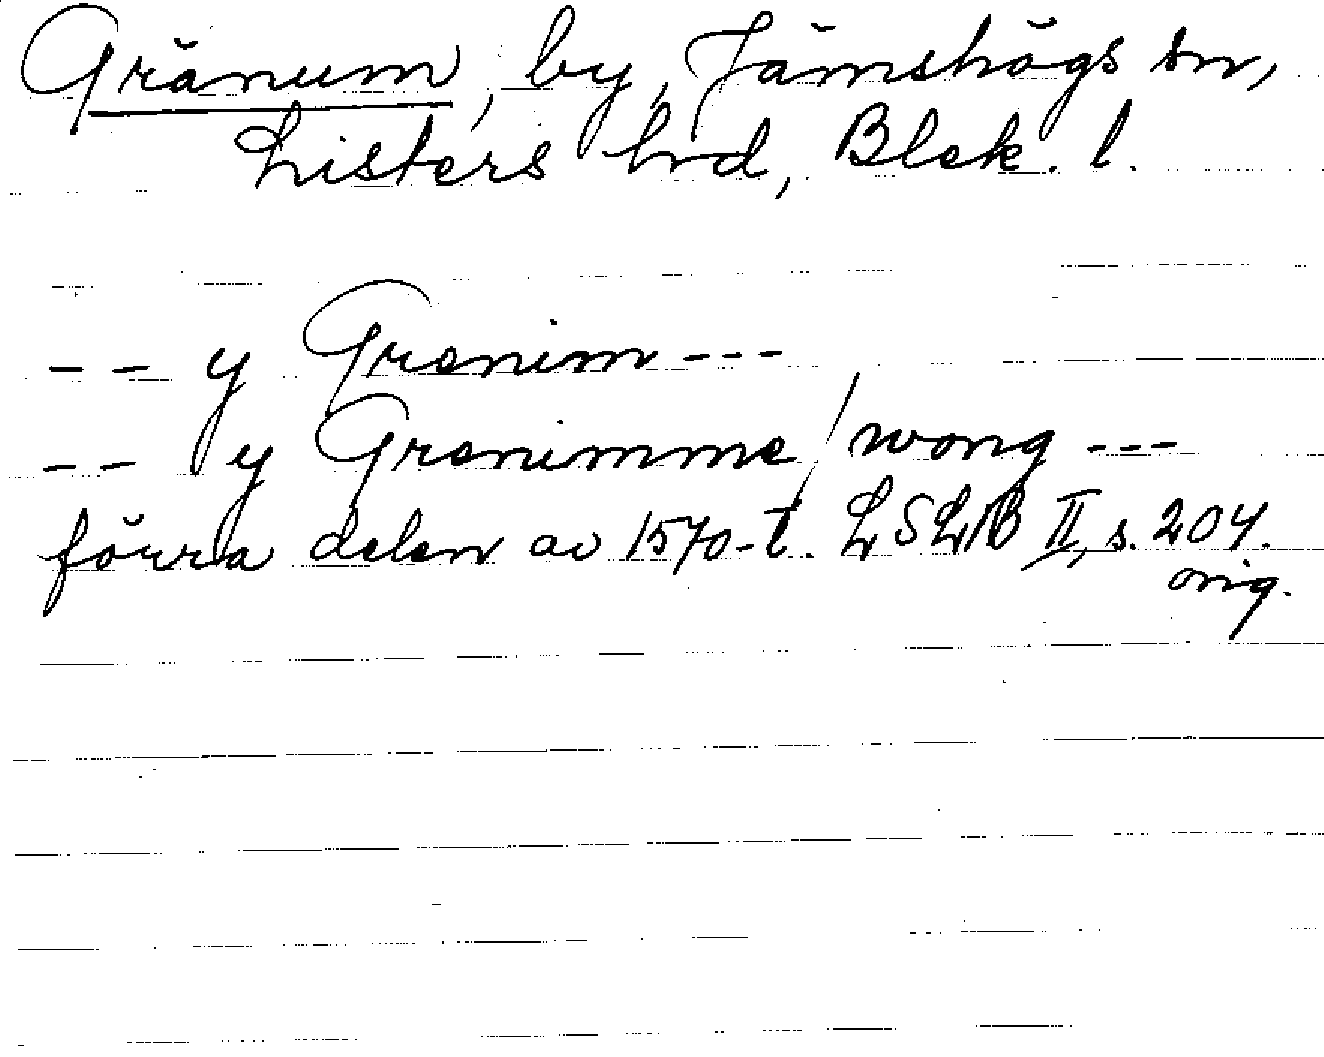 Gränum, by, Jämshögs sn,
Listers hrd, Blek. l.
-- y Grenim ---
-- y Grenimme/wong ---
förra delen av 1570-t. LSLJB II, s. 204.
orig.